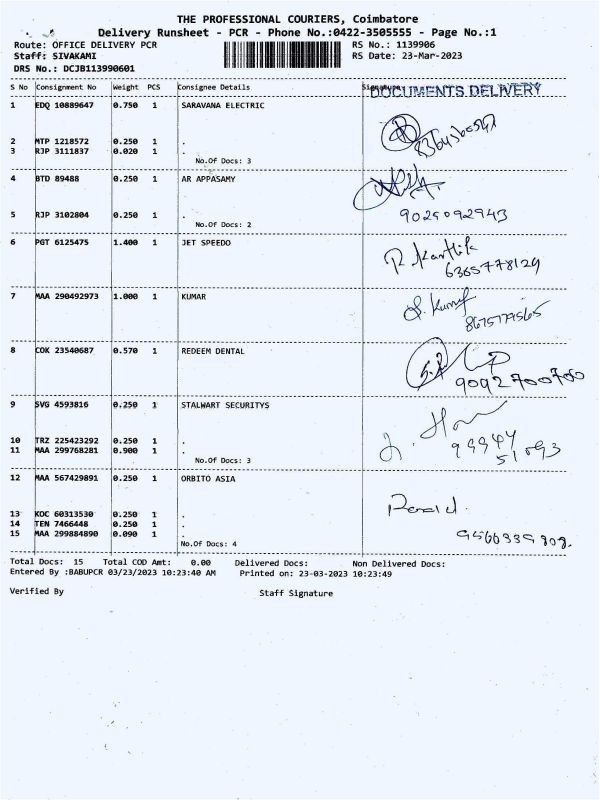 THE PROFESSIONAL COURIERS, Coimbatore
Delivery Runsheet - PCR - Phone No.:0422-3505555 - Page No.:1
Route: OFFICE DELIVERY PCR RS No.: 1139906
Staff: SIVAKAMI RS Date: 23-Mar-2023
DRS No.: DCJB113990601
S No Consignment No Weight PCS Consignee Details Signature
DOCUMENTS DELIVERY
1 EDQ 10889647 0.750 1 SARAVANA ELECTRIC
2 MTP 1218572 0.250 1 .
3 RJP 3111837 0.020 1 .
No.Of Docs: 3
4 BTD 89488 0.250 1 AR APPASAMY
5 RJP 3102804 0.250 1 .
9025092943
No.Of Docs: 2
6 PGT 6125475 1.400 1 JET SPEEDO
R. Karthik
6365778129
7 MAA 290492973 1.000 1 KUMAR
S. Kumar
8 COK 23540687 0.570 1 REDEEM DENTAL
9092700700
9 SVG 4593816 0.250 1 STALWART SECURITYS
10 TRZ 225423292 0.250 1 .
99944
11 MAA 299768281 0.900 1 .
51093
No.Of Docs: 3
12 MAA 567429891 0.250 1 ORBITO ASIA
13 KDC 60313530 0.250 1 .
14 TEN 7466448 0.250 1 .
15 MAA 299884890 0.090 1 .
No.Of Docs: 4
Total Docs: 15 Total COD Amt: 0.00 Delivered Docs: Non Delivered Docs:
Entered By :BABUPCR 03/23/2023 10:23:40 AM Printed on: 23-03-2023 10:23:49
Verified By Staff Signature